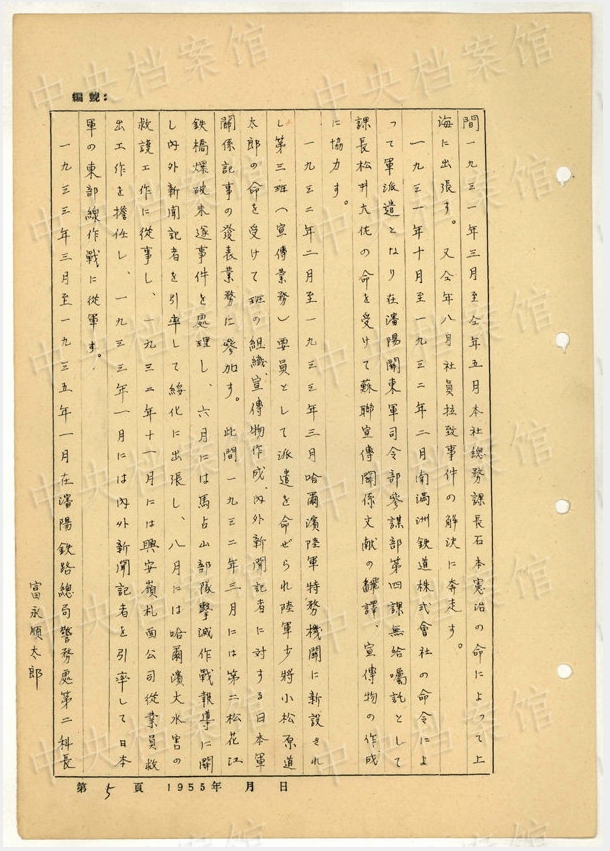 編號:
間一九三一年三月至仝年五月本社総務課長石本憲治の命によって上
海に出張す。又仝年八月社員拉致事件の解決に奔走す。
一九三一年十月至一九三二年二月南満洲鉄道株式會社の命令によ
って軍派遣となり在瀋陽関東軍司令部参謀部第四課無給囑託として
課長松井大佐の命を受けて蘇聯宣傳関係文献の飜譯、宣傳物の作成
に協力す。
一九三二年二月至一九三三年三月哈爾濱陸軍特務機関に新設され
し第三班(宣傳業務)要員として派遣を命ぜられ陸軍少將小松原道
太郎の命を受けて班の組織、宣傳物作成、内外新聞記者に対する日本軍
関係記事の發表業務に参加す。此間一九三二年三月には第二松花江
鉄橋爆破未遂事件を処理し、六月には馬占山部隊撃滅作戦報導に関
し内外新聞記者を引率して綏化に出張し、八月には哈爾濱大水害の
救護工作に從事し、一九三二年十一月には興安嶺札面公司從業員救
出工作を擔任し、一九三三年一月には内外新聞記者を引率して日本
軍の東部線作戦に從軍す。
一九三三年三月至一九三五年一月在瀋陽鉄路總局警務處第二科長
富永順太郎
第 5 頁 1955年 月 日
中央档案馆